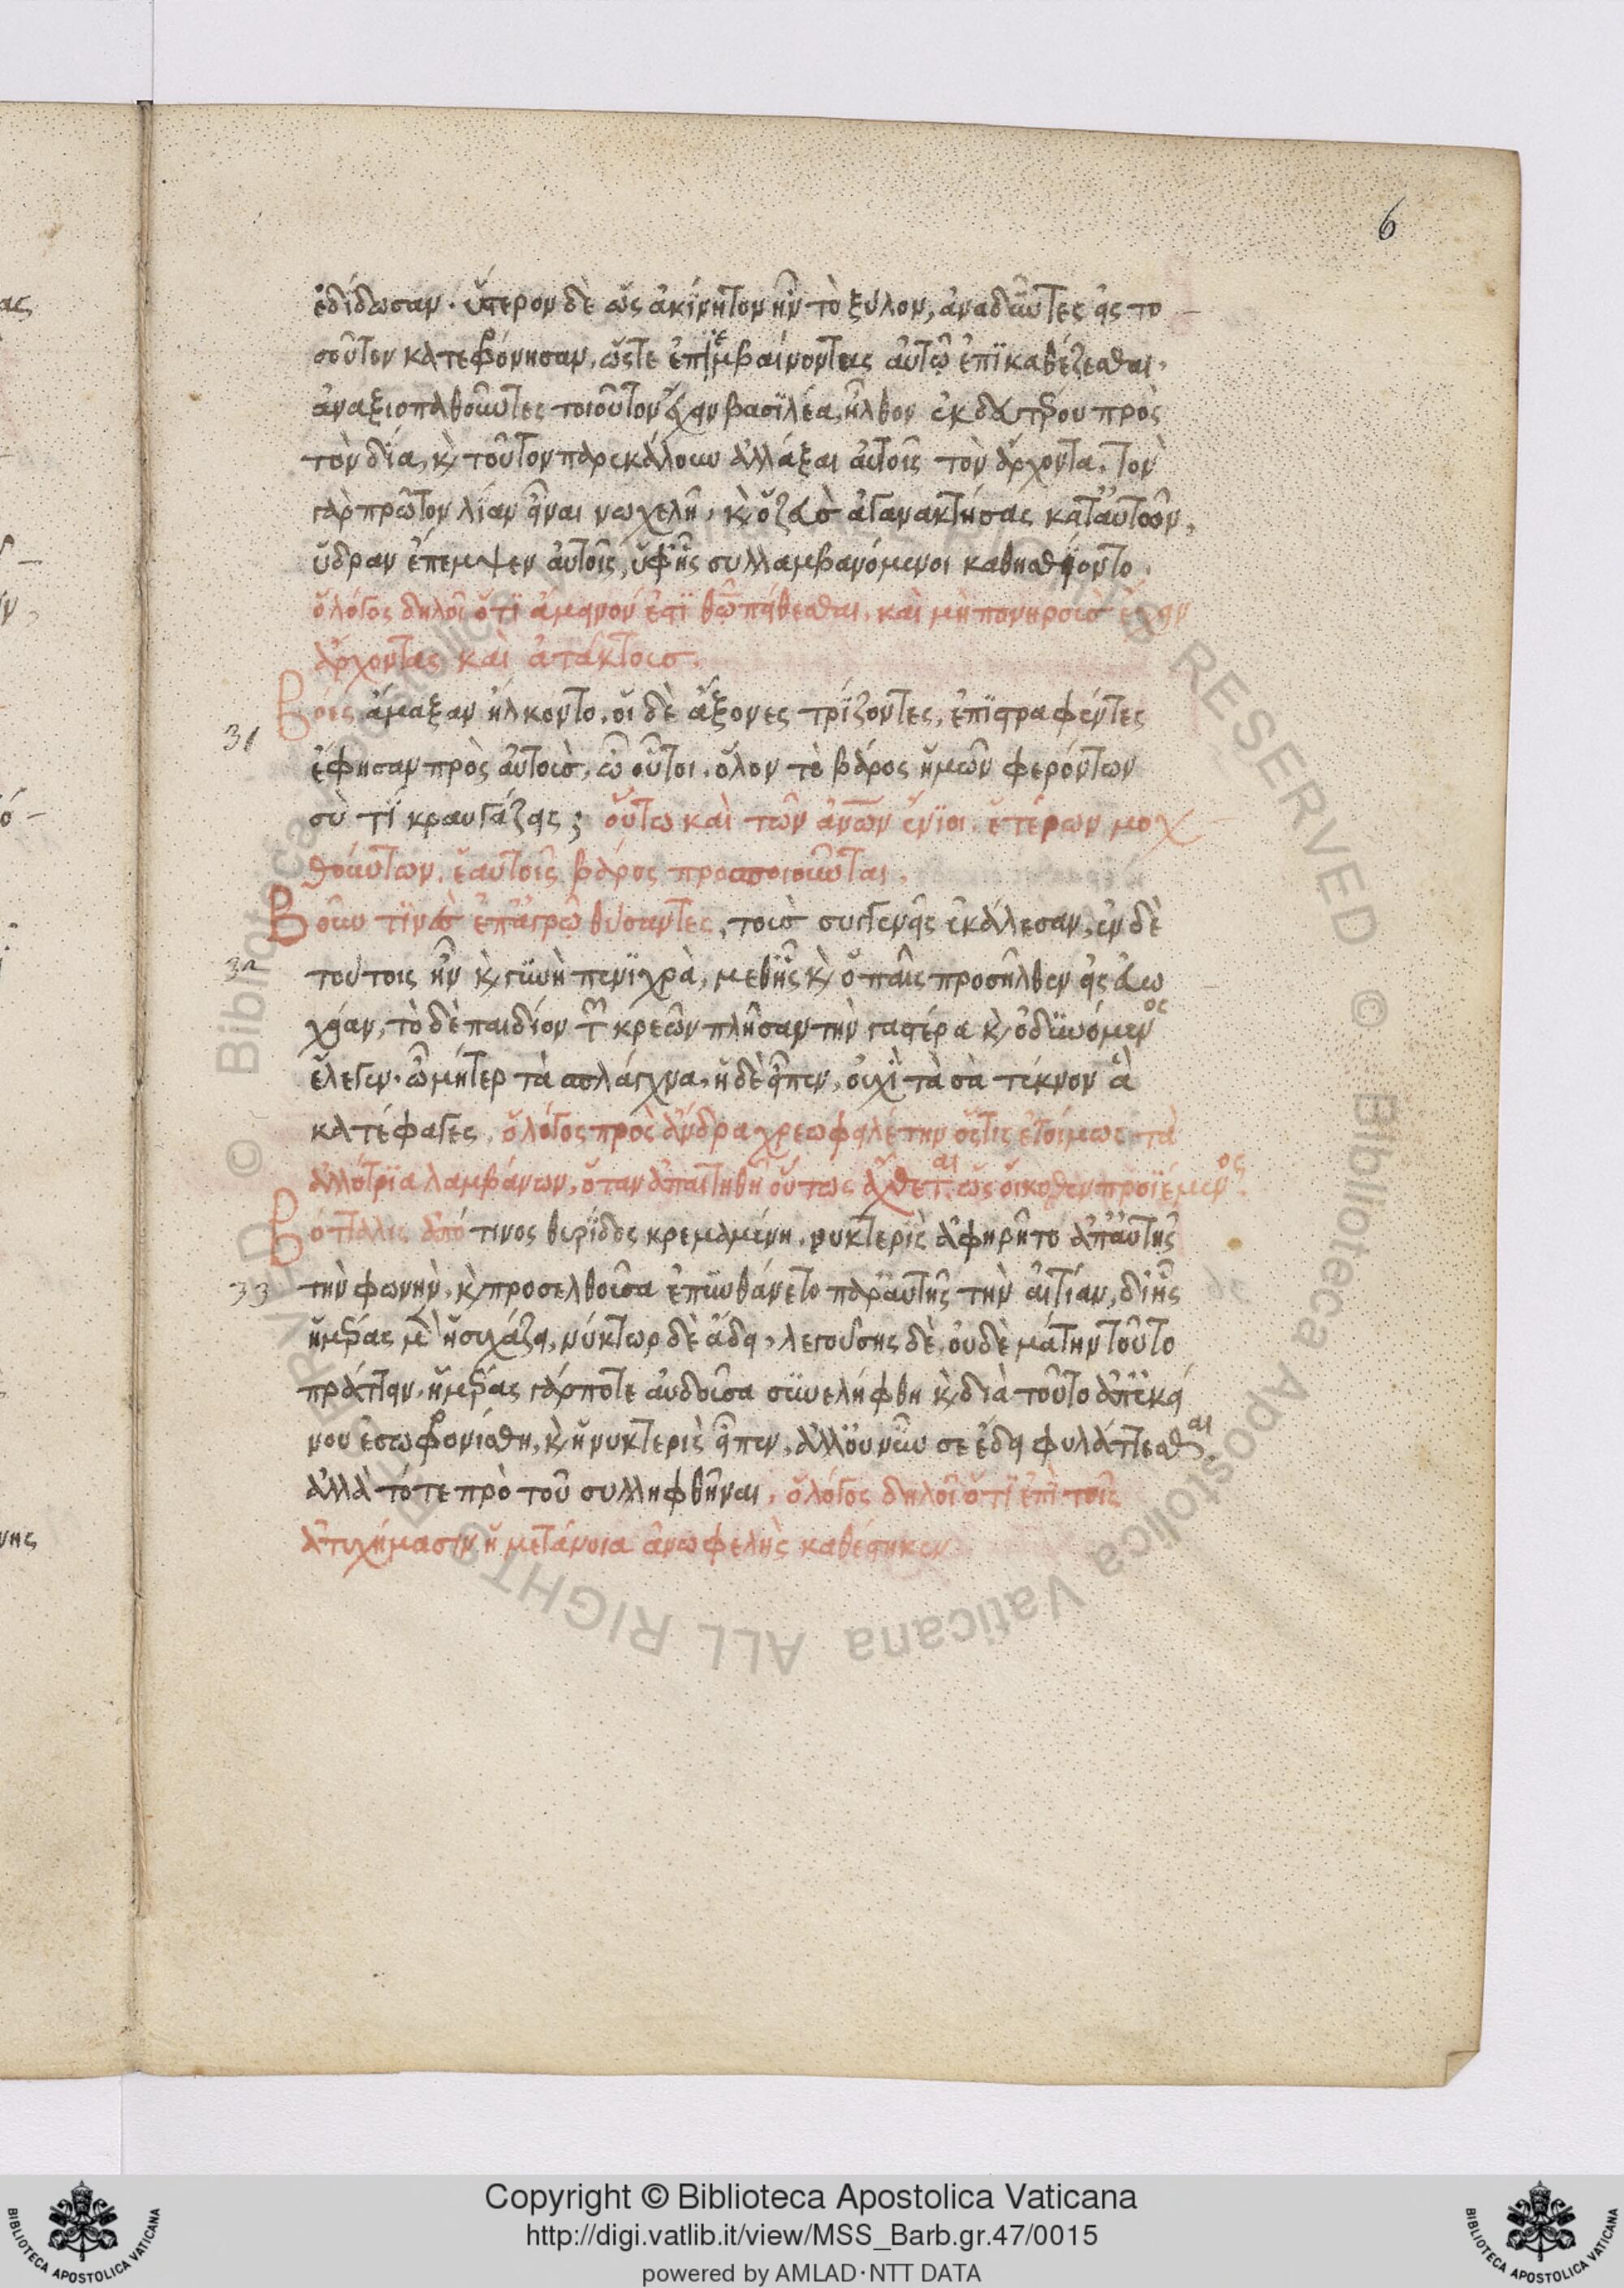 6
ἐδίδωσαν. ὕστερον δὲ ὡς ἀκίνητον ἦν τὸ ξύλον, ἀναδύντες εἰς το
σοῦτον κατεφρόνησαν, ὥστε ἐπεμβαίνοντες αὐτῷ ἐπικαθέζεσθαι.
ἀναξιοπαθοῦντες τοιοῦτον ἔχειν βασϊλέα, ἦλθον ἐκ δευτέρου πρὸς
τὸν δία, κὶ τοῦτον παρεκάλουν ἀλλάξαι αὐτοῖς τὸν ἄρχοντα. τὸν
γὰρ πρῶτον λίαν εἶναι νωχελῆ. κὶ ὁ ζεὺς ἀγανακτήσας κατ' αὐτῶν,
ὕδραν ἔπεμψεν αὐτοῖς, ὑφ' ἧς συλλαμβανόμενοι κατησθίοντο.
ὁ λόγος δηλοῖ ὅτϊ ἄμεινόν ἐστϊ θῶ πείθεσθαι. καὶ μὴ πονηροὺς ἔχειν
ἄρχοντας καὶ ἀτάκτους.
31
Βόες ἅμαξαν ἥλκοντο. οἱ δὲ ἄξονες τρίζοντες, ἐπϊστραφέντες
ἔφησαν πρὸς αὐτοὺς, ὦ οὗτοι. ὅλον τὸ βάρος ἡμῶν φερόντων
σὺ τί κραυγάζεις; οὕτω καὶ τῶν ἀνῶν ἔνϊοι. ἑτέρων μοχ
θούντων. ἑαυτοῖς βάρος προσποιοῦνται.
32
Βοῦν τϊνὲς ἐπ' ἀγρῷ θύσαντες, τοὺς συγγενεῖς ἐκάλεσαν, ἐν δὲ
τούτοις ἦν κὶ γϋνὴ πενϊχρὰ, μεθ' ἧς κὶ ὁ παῖς προσῆλθεν εἰς εὐω
χίαν, τὸ δὲ παιδίον τῶν κρεῶν πλῆσαν τὴν γαστέρα κὶ ὀδϋνόμενος
ἔλεγεν. ὦ μῆτερ τὰ σπλάγχνα. ἡ δὲ εἶπεν, οὐχὶ τὰ σὰ τέκνον ἃ
κατέφαγες. ὁ λόγος πρὸς ἄνδρα χρεωφειλέτην ὅστις ἑτοίμως τὰ
ἀλλότρϊα λαμβάνων, ὅταν ἀπαιτηθῆ οὕτως ἄχθεται ὡς οἴκοθεν προϊέμενος.
33
Βόταλις ἀπό τινος θυρϊδος κρεμαμένη. νυκτερὶς ἀφηρῆτο ἀπ' αὐτῆς
τὴν φωνὴν. κὶ προσελθοῦσα ἐπϋνθάνετο παρ' αὐτῆς τὴν αἰτίαν, δι' ἧς
ἡμέρας μὲν ἡσυχάζει, νύκτωρ δὲ ἄδει. λεγούσης δὲ, οὐδὲ μάτην τοῦτο
πράττειν. ἡμέρας γάρ ποτε αὐδοῦσα σϋνελήφθη κὶ διὰ τοῦτο ἀπ' ἐκεί
νου ἐσωφρονίσθη, κὶ ἡ νυκτερὶς εἶπεν, ἀλλ' οὐ νῦν σε ἔδει φυλάττεσθαι.
ἀλλὰ τότε πρὸ τοῦ συλληφθῆναι. ὁ λόγος δηλοῖ ὅτϊ ἐπὶ τοῖς
ἀτυχήμασιν ἡ μετάνοια ἀνωφελὴς καθέστηκεν
Copyright © Biblioteca Apostolica Vaticana
http://digi.vatlib.it/view/MSS_Barb.gr.47/0015
powered by AMLAD·NTT DATA